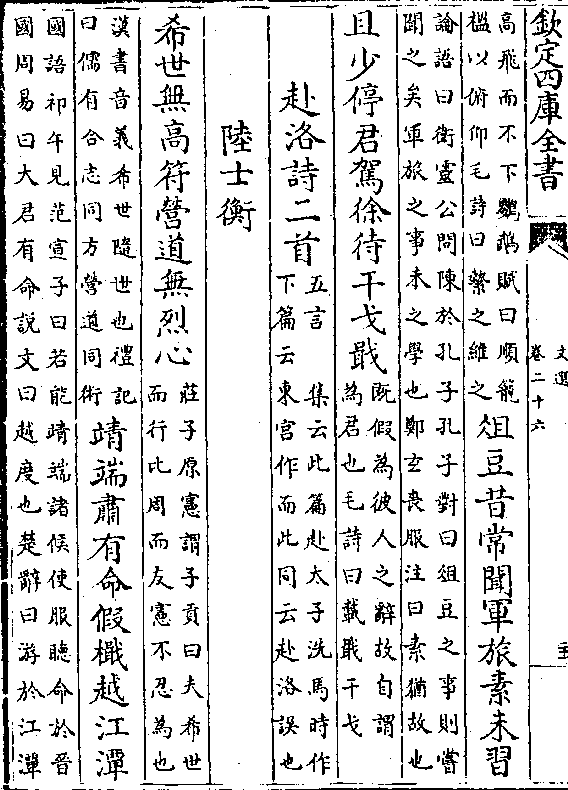 欽定四庫全書
文選
卷二十六
高飛而不下鸚鵡賦曰順籠
檻以俯仰毛詩曰縶之維之
俎豆昔常聞軍旅素未習
論語曰衛靈公問陳於孔子孔子對曰俎豆之事則嘗
聞之矣軍旅之事未之學也鄭玄喪服注曰素猶故也
且少停君駕徐待干戈戢
既假為彼人之辭故自謂
為君也毛詩曰載戢干戈
赴洛詩二首
五言 集云此篇赴太子洗馬時作
下篇云東宮作而此同云赴洛誤也
陸士衡
希世無高符營道無烈心
莊子原憲謂子貢曰夫希世
而行比周而友憲不忍為也
漢書音義希世隨世也禮記
曰儒有合志同方營道同術
靖端肅有命假檝越江潭
國語祁午見范宣子曰若能靖端諸侯使服聽命於晉
國周易曰大君有命說文曰越度也楚辭曰游於江潭